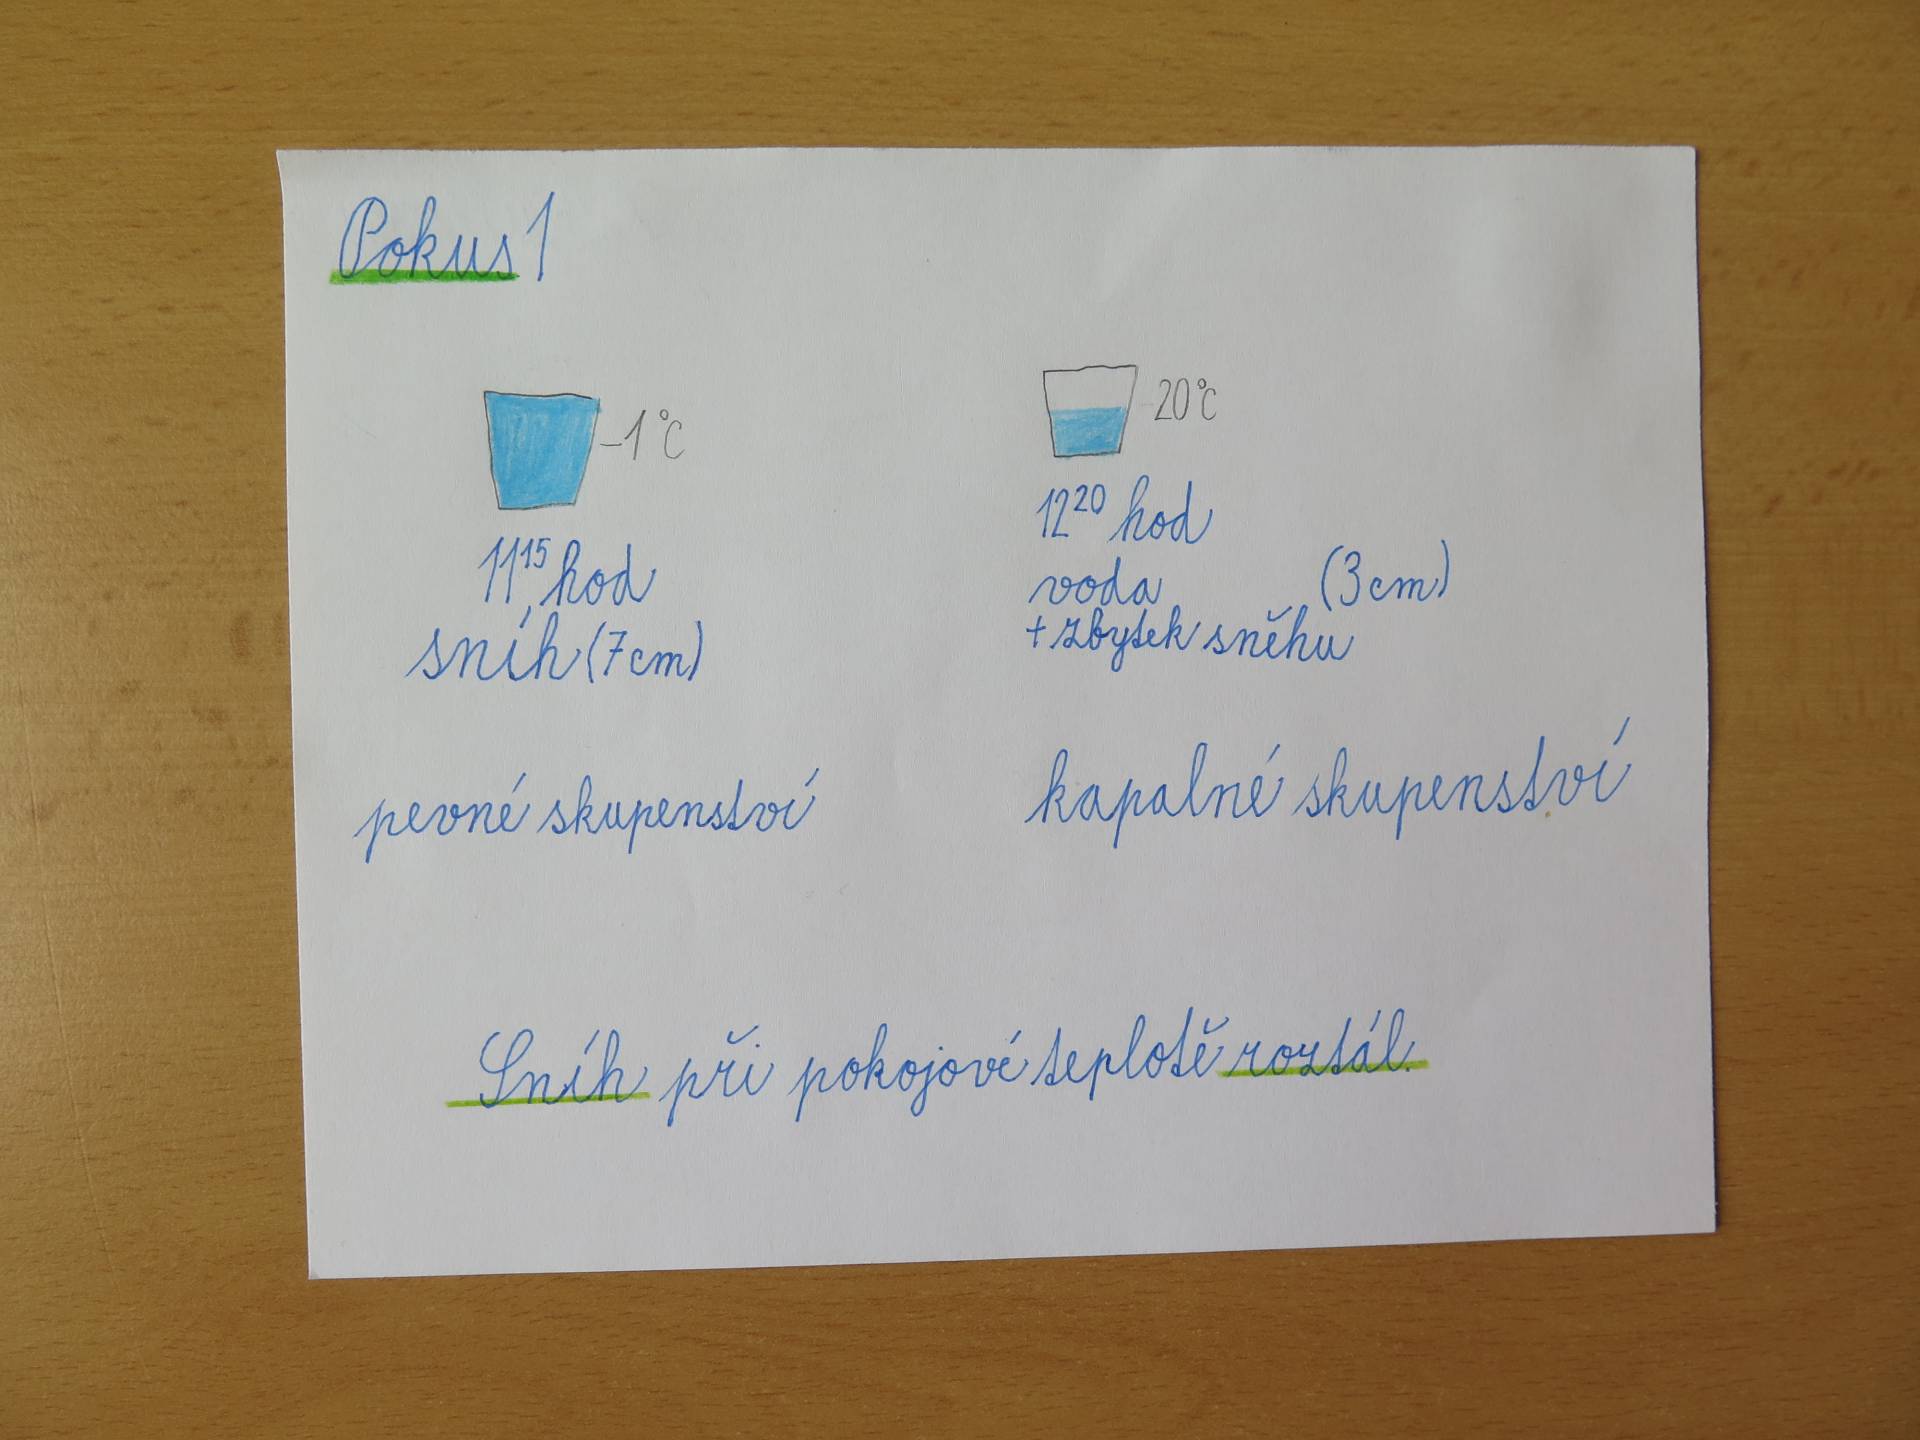 Pokus 1
-1°C
11¹⁵ hod
sníh (7cm)
pevné skupenství
20°C
12²⁰ hod
voda (3cm)
+ zbytek sněhu
kapalné skupenství
Sníh při pokojové teplotě roztál.